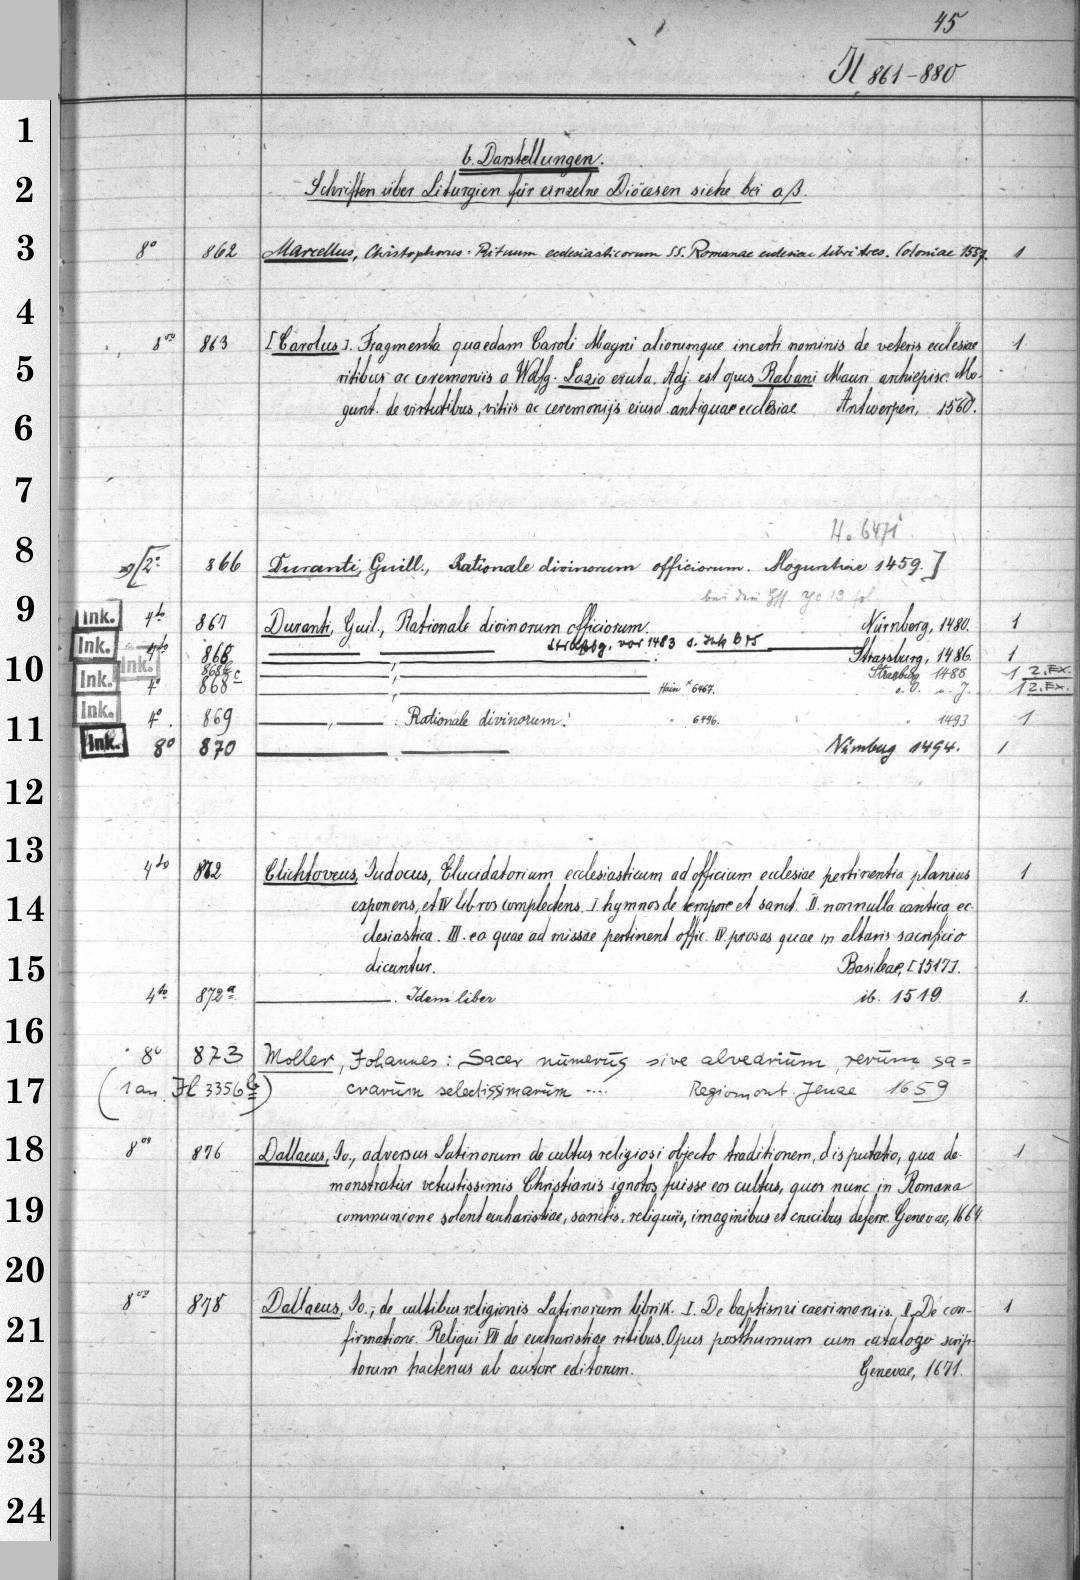 45
Jl 861-880
b. Darstellungen.
Schriften über Liturgien für einzelne Diöcesen siehe bei aβ.
8° 862 Marcellus, Christophorus: Rituum ecclesiasticorum SS. Romanae ecclesiae libri tres. Coloniae 1557. 1
8vo 863 [Carolus]. Fragmenta quaedam Caroli Magni aliorumque incerti nominis de veteris ecclesiae 1
ritibus ac ceremoniis a Wolfg. Lazio eruta. Adj. est opus Rabani Mauri archiepisc. Mo-
gunt. de virtutibus, vitiis ac ceremonijs eiusd. antiquae ecclesiae Antwerpen, 1560.
H. 6471
[2° 866 Duranti, Guill., Rationale divinorum officiorum. Moguntiae 1459.]
bei den Hss. Yc 13 fol.
Ink. 4to 867 Duranti, Guil., Rationale divinorum officiorum. Nürnberg, 1480. 1
Strassbg. vor 1483 s. Ink B 15
Ink. 4to 868 Strassburg, 1486. 1
Ink. 868b Strassburg 1488 1 2. Ex.
Ink. 4° 868c Hain * 6467. o. O. u. J. 1 2. Ex.
Ink. 4°. 869 —, — : Rationale divinorum! " 6496. " 1493 1
Ink. 8° 870 Nürnberg 1494. 1
4to 872 Clichtoveus, Judocus, Elucidatorium ecclesiasticum ad officium ecclesiae pertinentia planius 1
exponens, et IV libros complectens. I hymnos de tempore et sanct. II. nonnulla cantica ec-
clesiastica. III. ea quae ad missae pertinent offic. IV. prosas quae in altaris sacrificio
dicuntur. Basileae, [1517].
4to 872a —. Idem liber ib. 1519 1.
8° 873 Moller, Johannes: Sacer numerus sive alvearium, rerum sa=
(1 an Jl 3356b) crarum selectissimarum .... Regiomont. Jenae 1659
8vo 876 Dallaeus, Jo., adversus Latinorum de cultus religiosi objecto traditionem, disputatio, qua de- 1
monstratur vetustissimis Christianis ignotos fuisse eos cultus, quos nunc in Romana
communione solent eucharistiae, sanctis, reliquiis, imaginibus et crucibus deferre. Genevae, 1664
8vo 878 Dallaeus, Jo., de cultibus religionis Latinorum libri IX. I. De baptismi caerimoniis. II. De con- 1
firmatione. Reliqui VII de eucharistiae ritibus. Opus posthumum cum catalogo scrip-
torum hactenus ab autore editorum. Genevae, 1671.
1
2
3
4
5
6
7
8
9
10
11
12
13
14
15
16
17
18
19
20
21
22
23
24